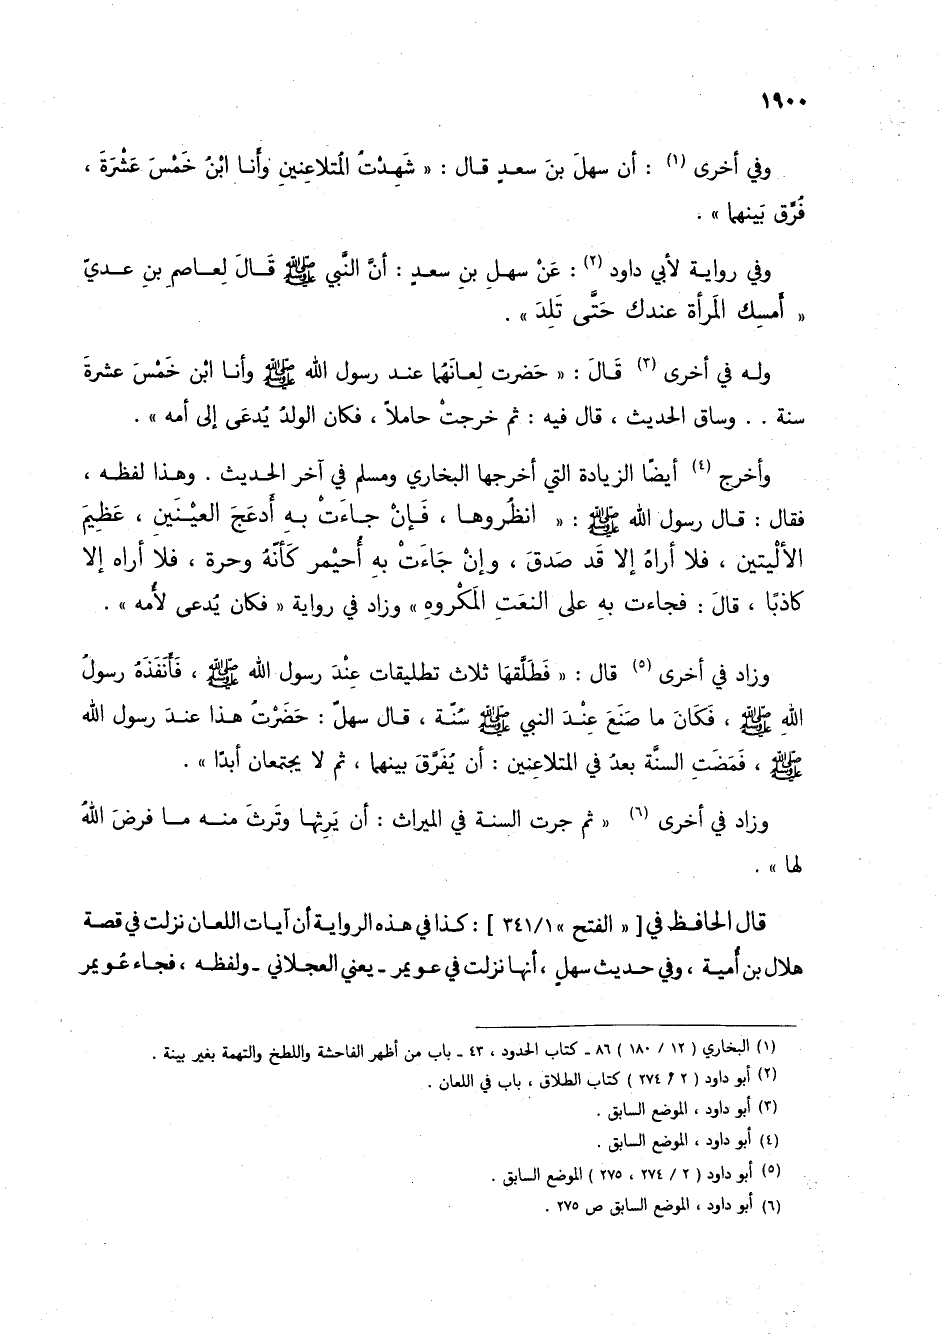 ١٩٠٠
وفي أخرى (١) : أن سهلَ بنَ سعـدٍ قـال : « شَهِدْتُ المُتلاعِنينِ وأَنـا ابْنُ خَمْسَ عَشْرَةَ ،
فُرِّق بَينهما » .
وفي روايـة لأبي داود (٢) : عَنْ سهـلِ بنِ سعـدٍ : أنَّ النَّبي ﷺ قَـالَ لِعـاصمِ بنِ عـديّ
« أَمسِك المَرأة عندك حَتَّى تَلِدَ » .
ولـه في أخرى (٣) قَـالَ : « حَضرت لِعانَهُما عنـد رسول الله ﷺ وأنـا ابْن خَمْسَ عشرةَ
سنة . . وساق الحديث ، قال فيه : ثم خرجتْ حاملاً ، فكان الولدُ يُدعَى إلى أمه » .
وأخرج (٤) أيضًا الزيادة التي أخرجها البخاري ومسلم في آخر الحديث . وهـذا لفظـه ،
فقال : قـال رسول الله ﷺ : « انظُروهـا ، فَـإنْ جـاءَتْ بـهِ أَدعَجَ العيْنَينِ ، عَظِيمَ
الألْيتين ، فلا أراهُ إلا قَد صدَقَ ، وإنْ جَاءَتْ بهِ أُحيْمر كَأنّهُ وحرة ، فلا أراه إلا
كاذبًا ، قالَ : فجاءت به على النعَتِ المَكْروهِ » وزاد في رواية « فكان يُدعى لأُمه » .
وزاد في أخرى (٥) قال : « فَطَلَّقهَا ثلاث تطليقات عِنْدَ رسول الله ﷺ ، فَأَنفَذَهُ رسولُ
اللهِ ﷺ ، فَكَانَ ما صَنَعَ عِنْـدَ النبي ﷺ سُنّة ، قـال سهلّ : حَضَرْتُ هـذا عنـدَ رسول الله
ﷺ ، فَمَضَتِ السنَّة بعدُ في المتلاعِنين : أن يُفَرَّقَ بينهما ، ثم لا يجتمعان أبدًا » .
وزاد في أخرى (٦) « ثم جرت السنة في الميراث : أن يَرِثها وتَرِثَ منـه مـا فرضَ اللهُ
لها » .
قال الحافـظ في [ « الفتح » ٣٤١/١ ] : كـذا في هـذه الروايـة أن آيـات اللعان نزلت في قصة
هلال بن أُمية ، وفي حـديث سهلٍ ، أنهـا نزلت في عـويمر ـ يعني العجلاني ـ ولفظـه ، فجـاء عُـويمر
(١) البخاري ( ١٢ / ١٨٠ ) ٨٦ ـ كتاب الحدود ، ٤٣ ـ باب من أظهر الفاحشة واللطخ والتهمة بغير بينة .
(٢) أبو داود ( ٢ / ٢٧٤ ) كتاب الطلاق ، باب في اللعان .
(٣) أبو داود ، الموضع السابق .
(٤) أبو داود ، الموضع السابق .
(٥) أبو داود ( ٢ / ٢٧٤ ، ٢٧٥ ) الموضع السابق .
(٦) أبو داود ، الموضع السابق ص ٢٧٥ .